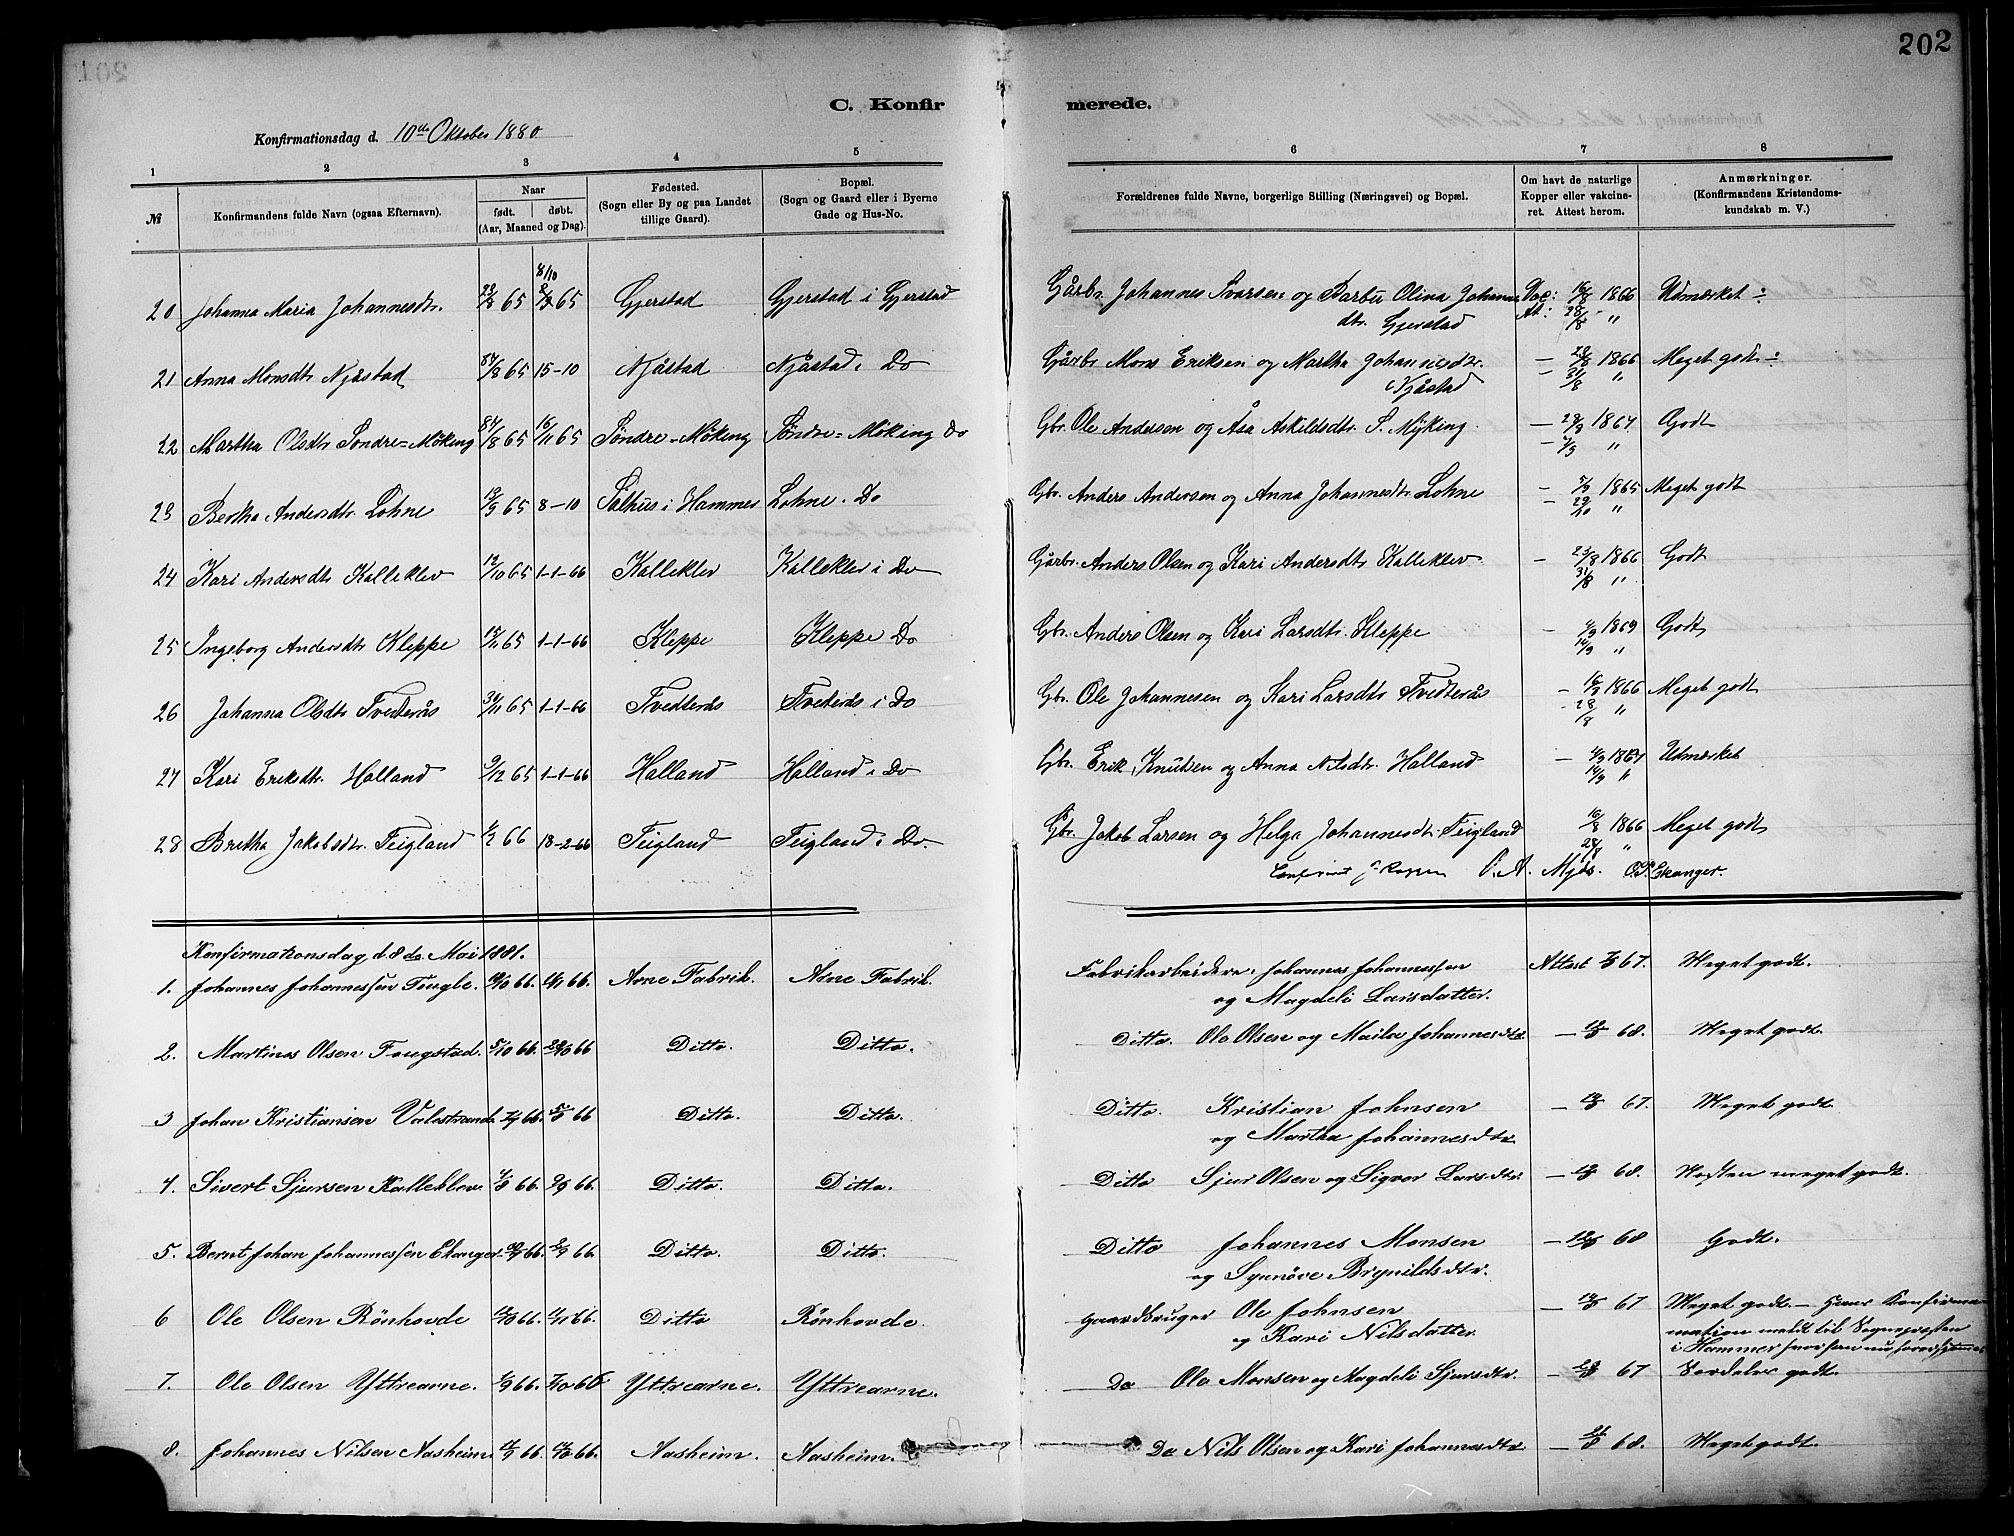 202
C. Konfirmerede.
Konfirmationsdag d. 10de Oktober 1880.
1 2 3 4 5 6 7 8
№ Konfirmandens fulde Navn (ogsaa Efternavn). Naar født. døbt. (Aar, Maaned og Dag). Fødested. (Sogn eller By og paa Landet tillige Gaard). Bopæl. (Sogn og Gaard eller i Byerne Gade og Hus-No. Forældrenes fulde Navne, borgerlige Stilling (Næringsvei) og Bopæl. Om havt de naturlige Kopper eller vakcineret. Attest herom. Anmærkninger. (Konfirmandens Kristendomskundskab m. V.)
20 Johanna Maria Johannesdtr. 65 8/10 65 Gjerstad Gjerstad i Gjerstad Gårbr. Johannes Ivarsen og Barbu Olina Johannesdtr. Gjerstad Vac: 1866 At: 28/8 " Udmærket
21 Anna Monsdtr Njåstad 65 15-10 Njåstad Njåstad i Do Gårbr Mons Eriksen og Martha Johannesdtr. Njåstad 1866 31/8 " Meget godt
22 Martha Olsdtr Søndre=Møking 65 65 Søndre=Møking Søndre=Møking Do Gbr. Ole Andersen og Åsa Askildsdtr. S. Myking. 1867 " Godt
23 Bertha Andersdtr. Lohne 65 8-10 Salhus i Hammer Lohne i Do Gbr. Anders Andersen og Anna Johannesdtr. Lohne 1865 29/10 " Meget godt
24 Kari Andersdtr Kalleklev 12/10 65 1-1-66 Kalleklev Kalleklev i Do Gårbr. Anders Olsen og Kari Andersdtr Kalleklev 1866 31/8 " Godt
25 Ingeborg Andersdtr Kleppe 65 1-1-66 Kleppe Kleppe Do Gbr. Anders Olsen og Kari Larsdtr. Kleppe 1869 14/9 " Godt
26 Johanna Olsdtr Tvedterås 65 1-1-66 Tvedterås Tveterås i Do Gbr. Ole Johannesen og Kari Larsdtr Tvedterås 1866 28/8 " Meget godt
27 Kari Eriksdtr. Halland 9/12 65 1-1-66 Halland Halland i Do Gbr. Erik Knutsen og Anna Nilsdtr. Halland 1867 14/9 " Udmærket
28 Britha Jakobsdtr. Teigland 66 18-2-66 Teigland Teigland i Do. Gbr. Jakob Larsen og Helga Johannesdtr. Teigland 16/8 1866 " Meget godt
O. A. Mjøs. O.P. Ekanger.
Konfirmationsdag d. 8de Mai 1881.
1. Johannes Johannessen Tingle. 66. 66. Arne Fabrik. Arne Fabrik. Fabrikarbeidere. Johannes Johannessen og Magdeli Larsdatter. Attest 67. Meget godt.
2. Martinus Olsen Tongstad. 5/10 66. 66 Ditto. Ditto. Ditto. Ole Olsen og Maila Johannesdtr. 68. Meget godt.
3 Johan Kristiansen Valestrand. 66. 66 Ditto. Ditto. Ditto. Kristian Johnsen og Martha Johannesdtr. 67. Meget godt.
4. Sivert Sjursen Kalleklev. 66. 66. Ditto. Ditto. Ditto Sjur Olsen og Sigvor Larsdtr. 68. Næsten meget godt.
5. Bernt Johan Johannessen Ekanger. 66. 66. Ditto. Ditto. Ditto Johannes Monsen og Synnöve Brynildsdtr. 68 Godt.
6 Ole Olsen Rönhovde 66. 66. Ditto Rönhovde. Gaardbruger Ole Johnsen og Kari Nilsdatter. 67 Meget godt. – Hans Konfirmation meldt til Sognepresten i Hammer
7. Ole Olsen Yttrearne. 66. 66 Yttrearne. Yttrearne. Do Ole Monsen og Magdeli Sjursdtr. 67 Særdeles godt.
8. Johannes Nilsen Aasheim. 66. 66. Aasheim. Aasheim. Do Nils Olsen og Kari Johannesdtr. 68. Meget godt.